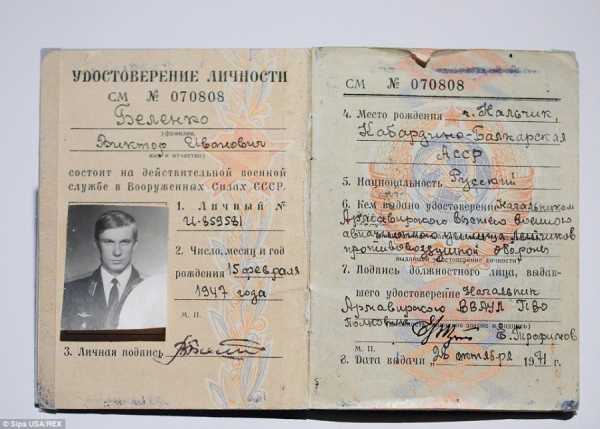 УДОСТОВЕРЕНИЕ ЛИЧНОСТИ
СМ № 070808
Беленко
(фамилия,
Виктор Иванович
имя и отчество)
состоит на действительной военной
службе в Вооруженных Силах СССР.
1. Личный №
И-859581
2. Число, месяц и год
рождения 15 февраля
1947 года
м. п.
3. Личная подпись
СМ № 070808
4. Место рождения г. Нальчик,
Кабардино-Балкарская
АССР
5. Национальность Русский
6. Кем выдано удостоверение Начальником
Армавирского высшего военного
авиационного училища летчиков
противовоздушной обороны
7. Подпись должностного лица, выдав-
шего удостоверение Начальник
Армавирского ВВАУЛ ПВО
Полковник
Е. Трофимов
м. п.
8. Дата выдачи „26 октября 1971 г.
© Sipa USA/REX